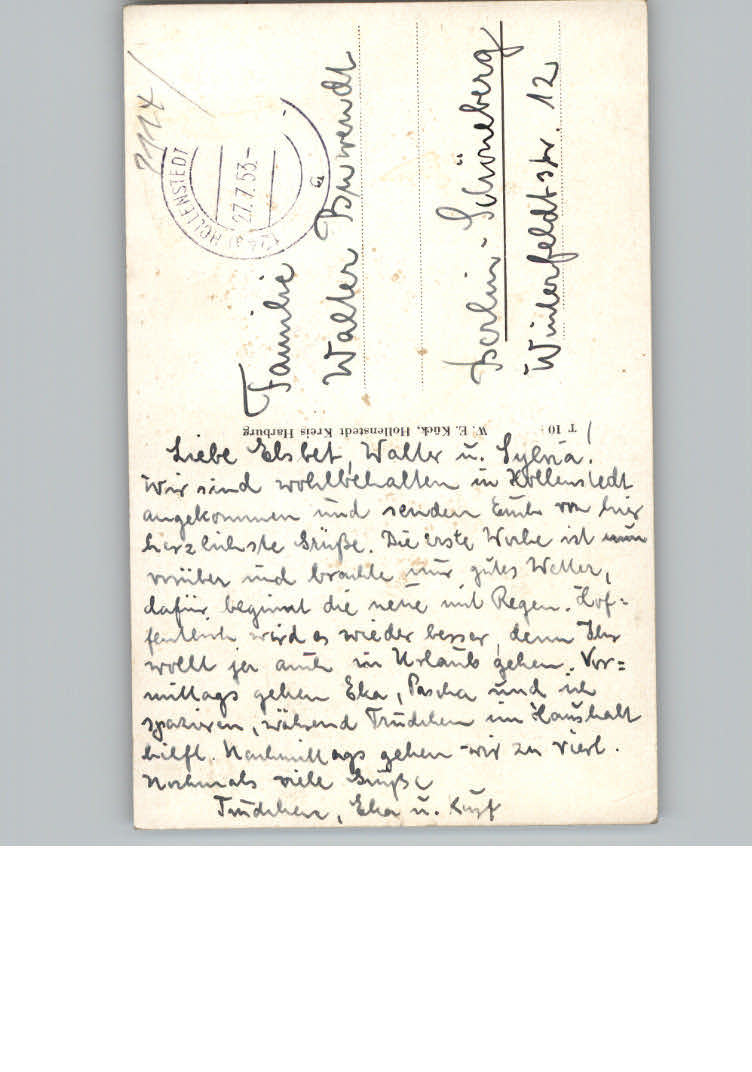 Liebe Elsbet, Walter u. Sylvia!
Wir sind wohlbehalten in Hollenstedt
angekommen und senden Euch von hier
herzlichste Grüße. Die erste Woche ist nun
vorüber und brachte nur gutes Wetter,
dafür beginnt die neue mit Regen. Hof=
fentlich wird es wieder besser, denn Ihr
wollt ja auch in Urlaub gehen. Vor=
mittags gehen Eka, Pascha und ich
spazieren, während Trudchen im Haushalt
hilft. Nachmittags gehen wir zu viert.
Nochmals viele Grüße
Trudchen, Eka u.
Familie
Walter
Berlin-Schöneberg
Winterfeldtstr. 12
(24a) HOLLENSTEDT
27.7.53.-
a
W. E. Kück, Hollenstedt Kreis Harburg
T 10